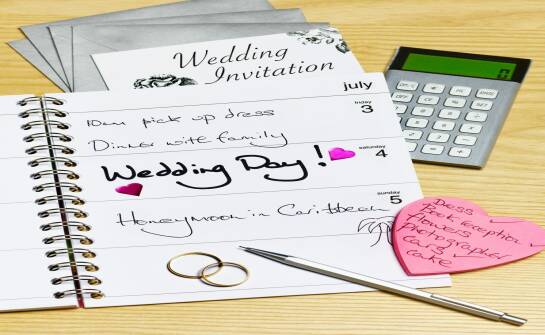 Wedding
Invitation
july
friday
3
10am pick up dress
Dinner with family
Wedding Day!
saturday
4
sunday
5
Honeymoon in Caribbean
Dress
Book reception
flowers
photographer
cars
cake